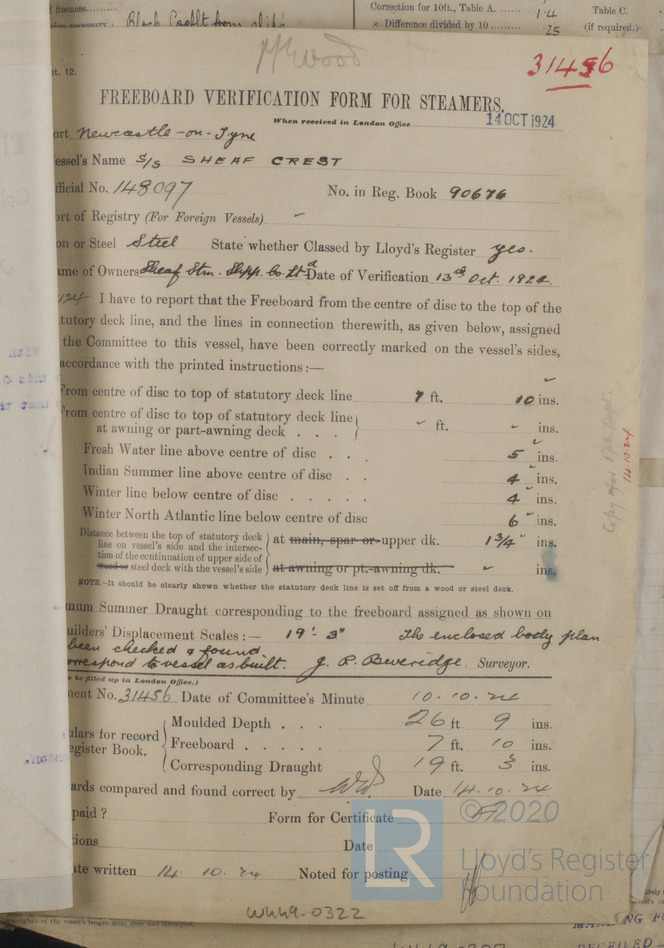 f fineness........
Correction for 10ft., Table A. ...... 1·4 Table C.
sion necessary :
× Difference divided by 10 ......... ·25 (if required.)
pt. 12.
31456
FREEBOARD VERIFICATION FORM FOR STEAMERS.
When received in London Office 14 OCT 1924
ort Newcastle-on-Tyne
essel's Name S/S SHEAF CREST
fficial No. 148097 No. in Reg. Book 90676
ort of Registry (For Foreign Vessels) -
on or Steel Steel State whether Classed by Lloyd's Register yes.
ame of Owners Sheaf Stm. Shpp. Co. Ltd Date of Verification 13th Oct. 1924.
124 I have to report that the Freeboard from the centre of disc to the top of the
tutory deck line, and the lines in connection therewith, as given below, assigned
the Committee to this vessel, have been correctly marked on the vessel's sides,
accordance with the printed instructions :—
From centre of disc to top of statutory deck line 7 ft. 10 ins.
From centre of disc to top of statutory deck line
at awning or part-awning deck . . . - ft. - ins.
Fresh Water line above centre of disc . . . 5 ins.
Indian Summer line above centre of disc . . 4 ins.
Winter line below centre of disc . . . . . 4 ins.
Winter North Atlantic line below centre of disc 6 ins.
Distance between the top of statutory deck
line on vessel's side and the intersec-
tion of the continuation of upper side of
wood or steel deck with the vessel's side
at main, spar or upper dk. 1 3/4" ins.
at awning or pt.-awning dk. - ins.
NOTE.—It should be clearly shown whether the statutory deck line is set off from a wood or steel deck.
mum Summer Draught corresponding to the freeboard assigned as shown on
uilders' Displacement Scales :— 19'- 3" The enclosed body plan
been checked & found
orrespond to vessel as built. J. P. Beveridge. Surveyor.
o be filled up in London Office.)
ment No. 31456 Date of Committee's Minute 10.10.24
ulars for record
egister Book.
Moulded Depth . . . 26 ft 9 ins.
Freeboard . . . . . 7 ft. 10 ins.
Corresponding Draught 19 ft. 3 ins.
ards compared and found correct by Date 14.10.24
paid ? Form for Certificate
tions Date
ate written 14.10.24 Noted for posting
© 2020
LR
Lloyd's Register
Foundation
W449-0322
14.10.24